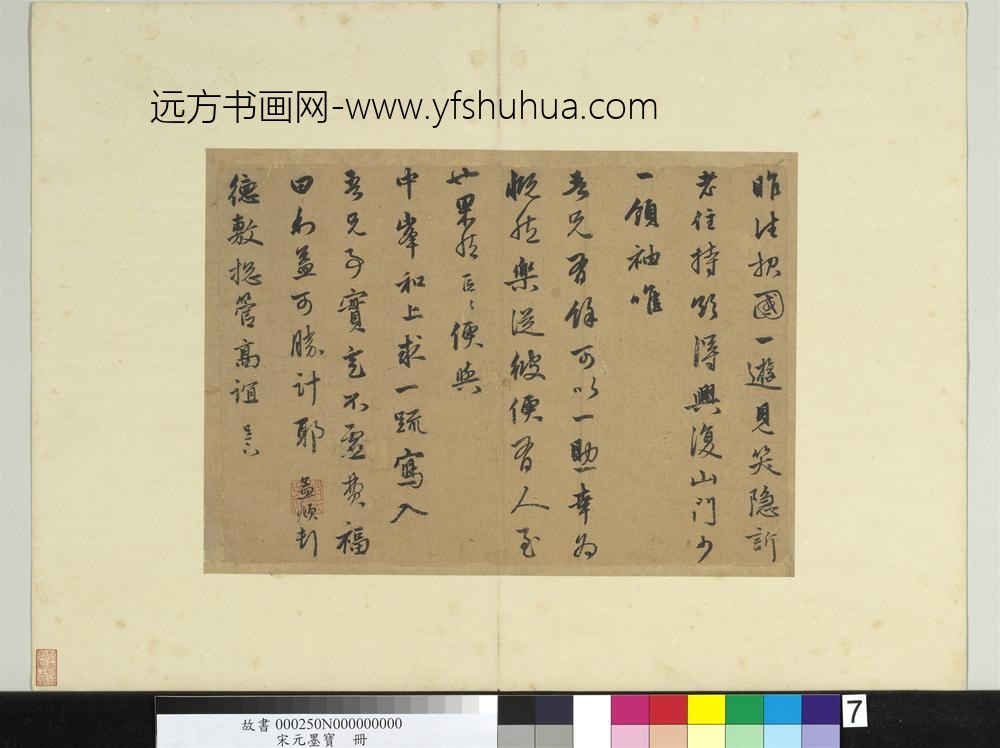 远方书画网-www.yfshuhua.com
昨法报國一遊見笑隐訢
老住持欲得興復山門少
一領袖唯
吾兄有餘可以一助幸为
慨然樂從彼便有人至
廿果然區〻便與
中峯和上求一疏寫入
吾兄子實定不虚費福
田利益可勝計耶 孟頫封
德敷捴管髙誼
故書 000250N000000000
宋元墨寶 冊
7